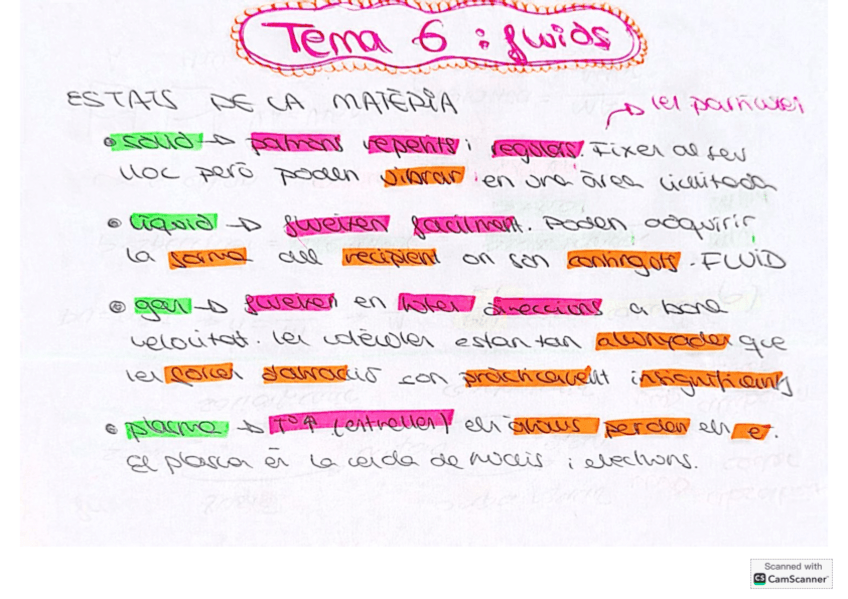 Tema 6 : fluids
ESTATS DE LA MATÈRIA
→ les partícules
• sòlid → patrons repetits i regulars. Fixes al seu
lloc però poden vibrar en una àrea limitada
• líquid → flueixen fàcilment. Poden adquirir
la forma del recipient on són continguts. FLUID
• gas → flueixen en totes direccions a bona
velocitat. Les molècules estan tan allunyades que
les forces d'atracció són pràcticament insignificants
• plasma → Tª↑ (estrelles) els àtoms perden els e⁻.
El plasma és la mida de nuclis i electrons.
Scanned with
CS CamScanner